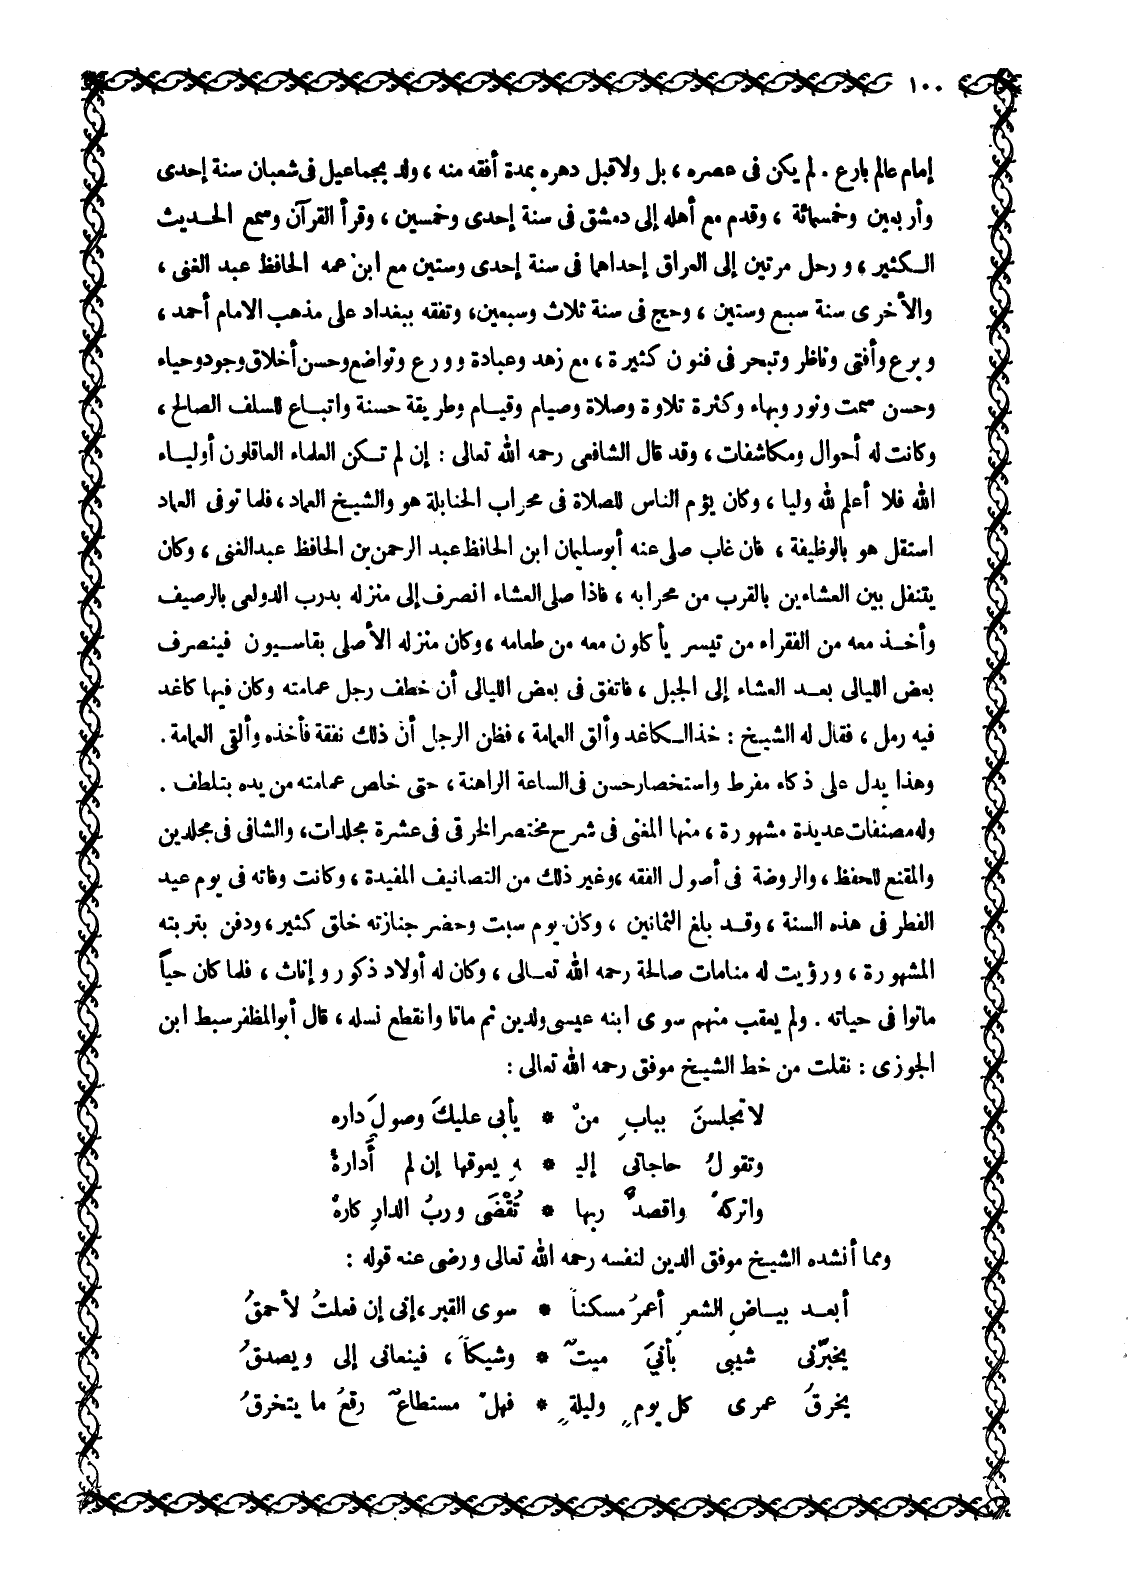 ١٠٠
إمام عالم بارع . لم يكن فى عصره ، بل ولا قبل دهره بمدة أفقه منه ، ولد بجماعيل فى شعبان سنة إحدى
وأربعين وخمسمائة ، وقدم مع أهله إلى دمشق فى سنة إحدى وخمسين ، وقرأ القرآن وسمع الحديث
الكثير ، ورحل مرتين إلى العراق إحداهما فى سنة إحدى وستين مع ابن عمه الحافظ عبد الغنى ،
والأخرى سنة سبع وستين ، وحج فى سنة ثلاث وسبعين، وتفقه ببغداد على مذهب الامام أحمد ،
وبرع وأفتى وناظر وتبحر فى فنون كثيرة ، مع زهد وعبادة وورع وتواضع وحسن أخلاق وجود وحياء
وحسن سمت ونور وبهاء وكثرة تلاوة وصلاة وصيام وقيام وطريقة حسنة واتباع للسلف الصالح ،
وكانت له أحوال ومكاشفات ، وقد قال الشافعى رحمه الله تعالى : إن لم تكن العلماء العاقلون أولياء
الله فلا أعلم لله وليا ، وكان يؤم الناس للصلاة فى محراب الحنابلة هو والشيخ العماد ، فلما توفى العماد
استقل هو بالوظيفة ، فان غاب صلى عنه أبو سليمان ابن الحافظ عبد الرحمن بن الحافظ عبد الغنى ، وكان
يتنفل بين العشاءين بالقرب من محرابه ، فاذا صلى العشاء انصرف إلى منزله بدرب الدولعى بالرصيف
وأخذ معه من الفقراء من تيسر يأكلون معه من طعامه ، وكان منزله الأصلى بقاسيون فينصرف
بعض الليالى بعد العشاء إلى الجبل ، فاتفق فى بعض الليالى أن خطف رجل عمامته وكان فيها كاغد
فيه رمل ، فقال له الشيخ : خذ الكاغد وألق العمامة ، فظن الرجل أن ذلك نفقة فأخذه وألقى العمامة .
وهذا يدل على ذكاء مفرط واستحضار حسن فى الساعة الراهنة ، حتى خلص عمامته من يده بتلطف .
وله مصنفات عديدة مشهورة ، منها المغنى فى شرح مختصر الخرقى فى عشرة مجلدات، والشافى فى مجلدين
والمقنع للحفظ ، والروضة فى أصول الفقه ،وغير ذلك من التصانيف المفيدة ، وكانت وفاته فى يوم عيد
الفطر فى هذه السنة ، وقد بلغ الثمانين ، وكان يوم سبت وحضر جنازته خلق كثير ، ودفن بتربته
المشهورة ، ورؤيت له منامات صالحة رحمه الله تعالى ، وكان له أولاد ذكور وإناث ، فلما كان حياً
ماتوا فى حياته . ولم يعقب منهم سوى ابنه عيسى ولدين ثم ماتا وانقطع نسله ، قال أبو المظفر سبط ابن
الجوزى : نقلت من خط الشيخ موفق رحمه الله تعالى :
لا تجلسنَ ببابِ منْ * يأبى عليكَ وصولَ داره
وتقولُ حاجاتى إليـ * ـهِ يعوقها إن لم أُدارهْ
واتركهُ واقصدْ ربها * تُقْضَى وربُ الدارِ كارهْ
ومما أنشده الشيخ موفق الدين لنفسه رحمه الله تعالى ورضى عنه قوله :
أبعد بياضِ الشعرِ أعمرُ مسكناً * سوى القبر ،إنى إن فعلتُ لأحمقُ
يخبرّنى شيبى بأنيَ ميتٌ * وشيكاً ، فينعانى إلى ويصدقُ
يخرقُ عمرى كل يومٍ وليلةٍ * فهلْ مستطاعٌ رقعُ ما يتخرقُ